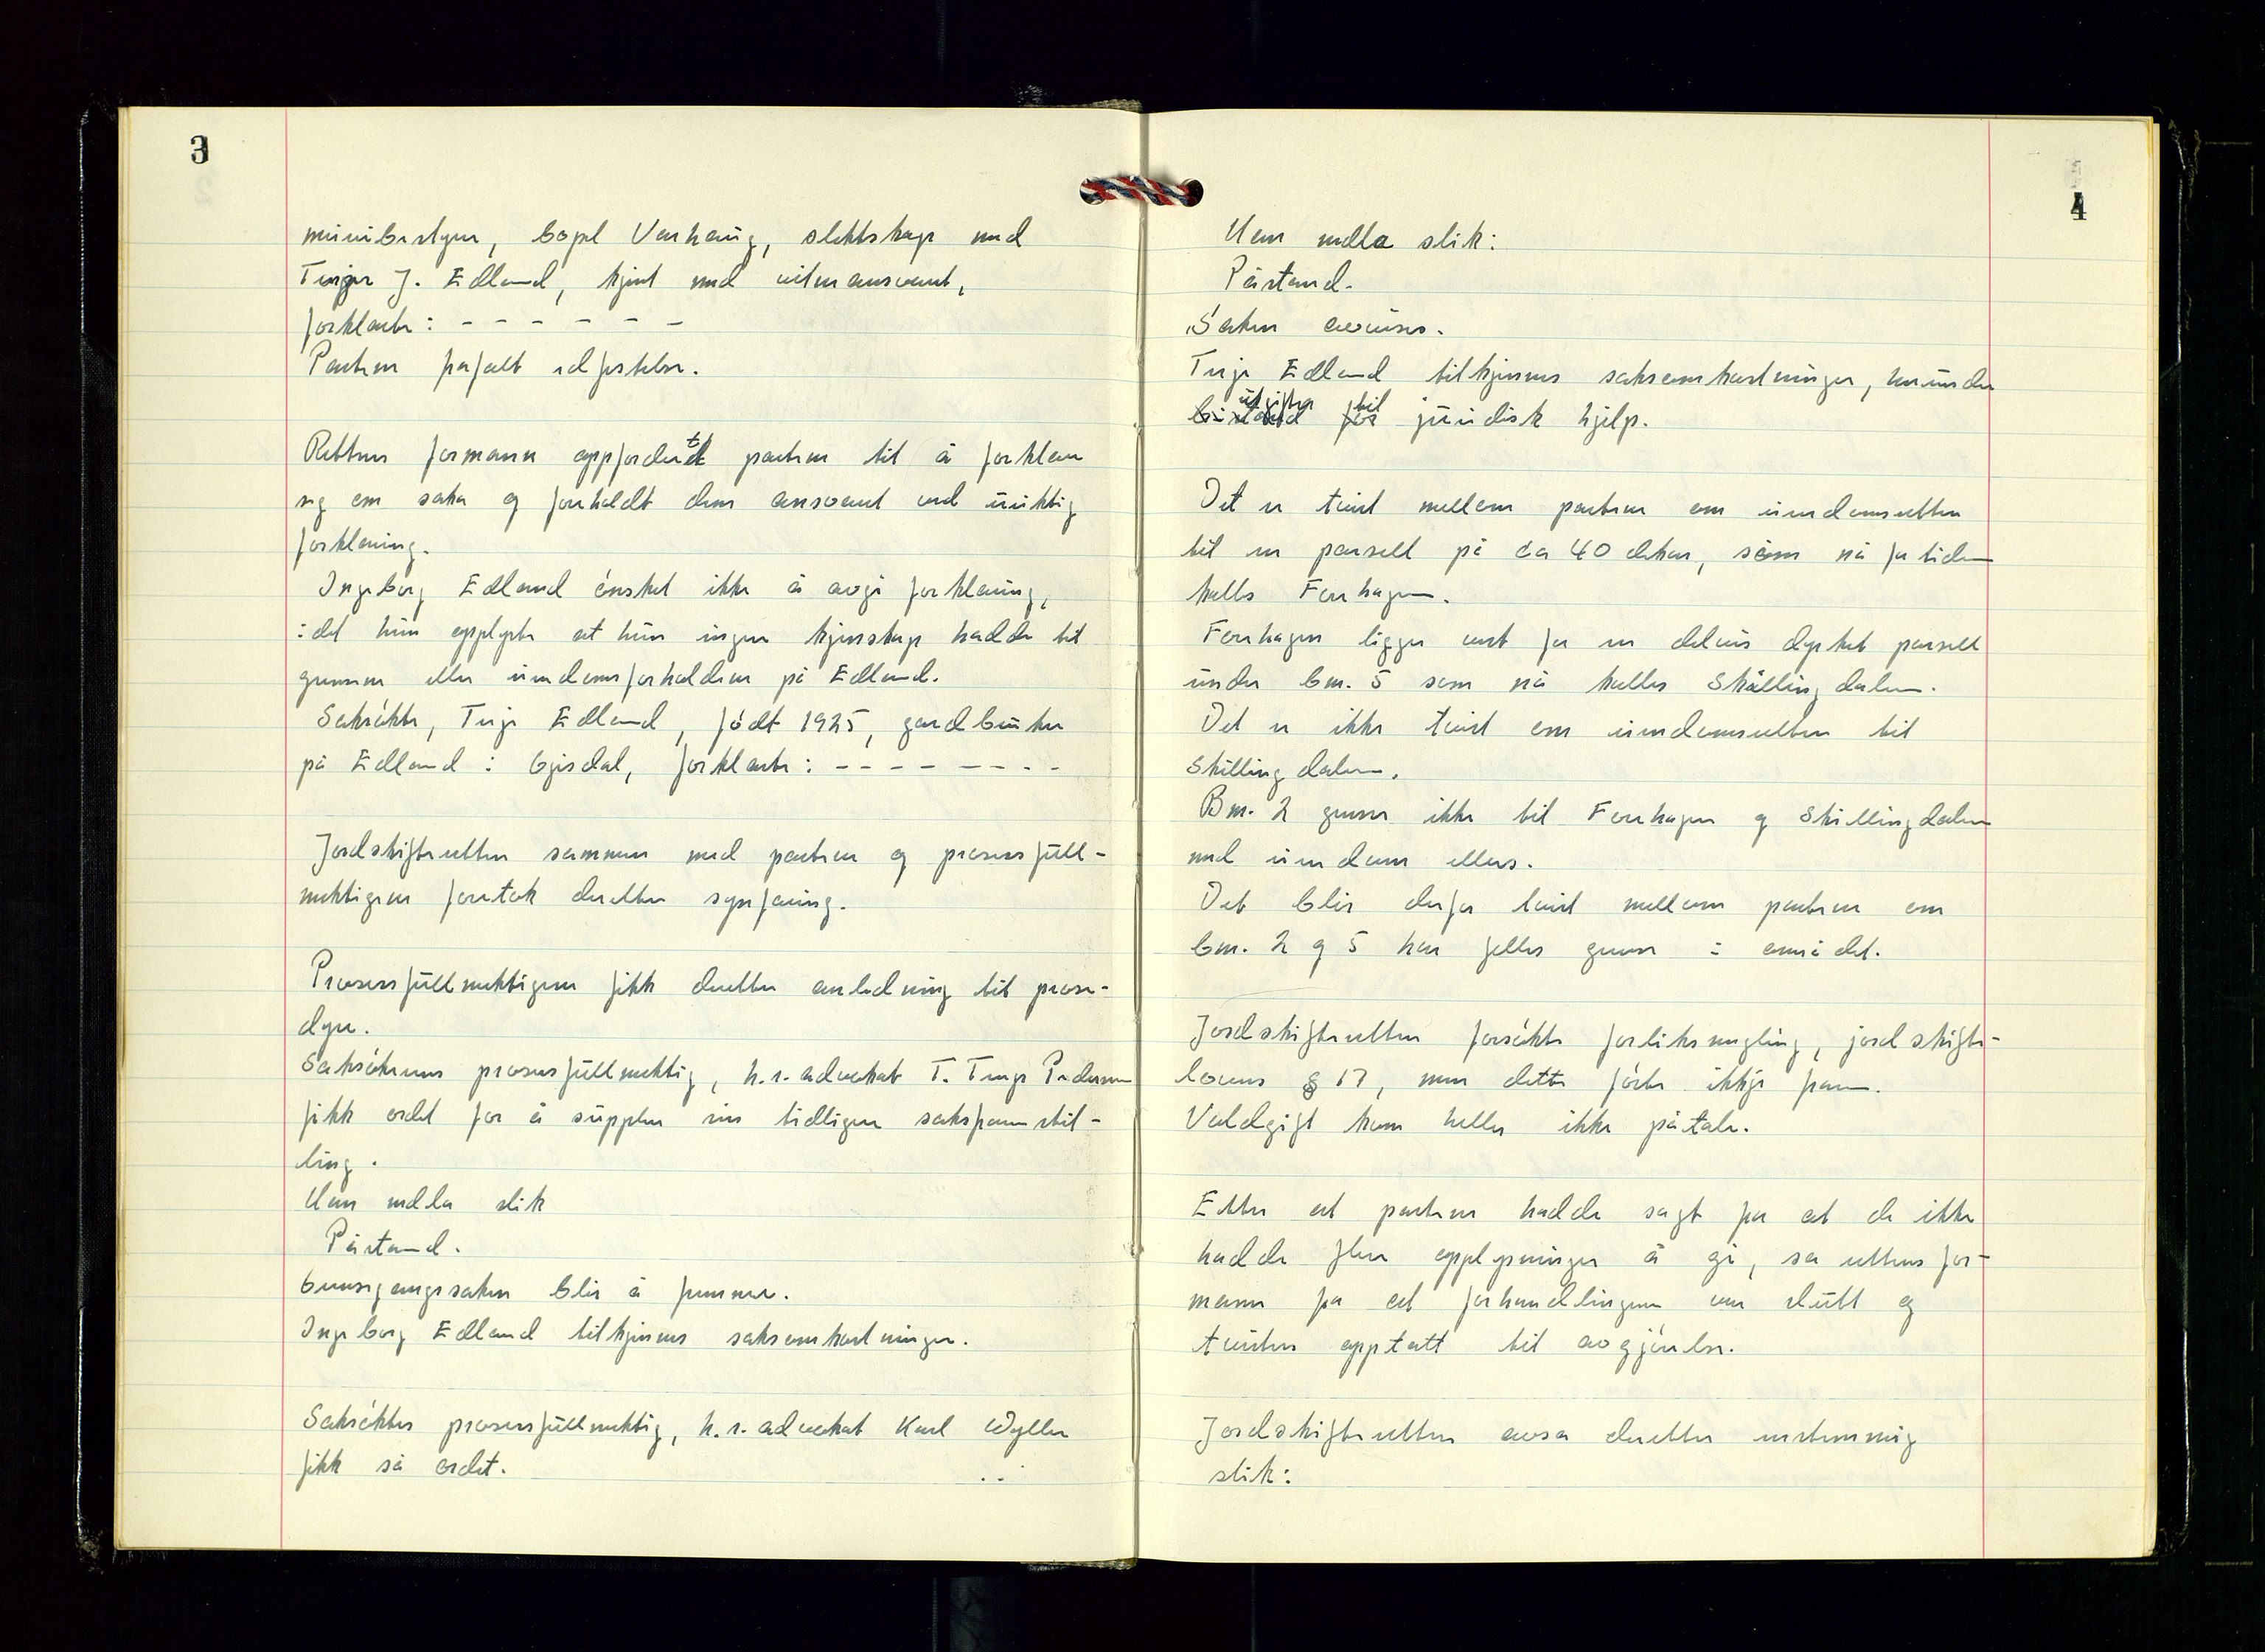 3
meieribestyrer, bopel Varhaug, slektskap med
Terjer J. Edland, kjent med vitneansvaret,
forklarte: - - - - - - -
Parten frafalt edfestelse.
Rettens formann oppfordret partene til å forklare
seg om saka og foreholdt dem ansvaret ved uriktig
forklaring.
Ingeborg Edland ønsket ikke å avgi forklaring,
idet hun opplyste at hun ingen kjenskap hadde til
grensene eller eiendomsforholdene på Edland.
Saksøkte, Terje Edland, født 1925, gardbruker
på Edland i Gjesdal, forklarte: - - - - - - - -
Jordskifteretten sammen med partene og prosessfull-
mektigene foretok deretter synfaring.
Prosessfullmektigene fikk deretter anledning til prose-
dyre.
Saksøkerens prosessfullmektig, h.r.advokat T. Terje Pedersen
fikk ordet for å supplere sin tidligere saksframstil-
ling.
Han nedla slik
Påstand.
Grensegangssaken blir å fremme.
Ingeborg Edland tilkjennes saksomkostninger.
Saksøktes prosessfullmektig, h.r.advokat Karl Wyller
fikk så ordet.
4
Han nedla slik:
Påstand.
Saken avvises.
Terje Edland tilkjennes saksomkostninger, herunder
utgifter til
bistand for juridisk hjelp.
Det er tvist mellom partene om eiendomsretten
til en parsell på ca 40 dekar, som nå for tiden
kalles Forrhagen.
Forrhagen ligger vest for en delvis dyrket parsell
under bnr. 5 som nå kalles Skillingdalen.
Det er ikke tvist om eiendomsretten til
Skillingdalen.
Bnr. 2 grenser ikke til Forrhagen og Skillingdalen
med eiendom ellers.
Det blir derfor tvist mellom partene om
bnr. 2 og 5 har felles grense i området.
Jordskifteretten forsøkte forliksmegling, jordskifte-
lovens § 17, men dette førte ikkje fram.
Voldgift kom heller ikke på tale.
Etter at partene hadde sagt fra at de ikke
hadde flere opplysninger å gi, sa rettens for-
mann fra at forhandlingene var slutt og
tvisten opptatt til avgjørelse.
Jordskifteretten avsa deretter enstemmig
slik: